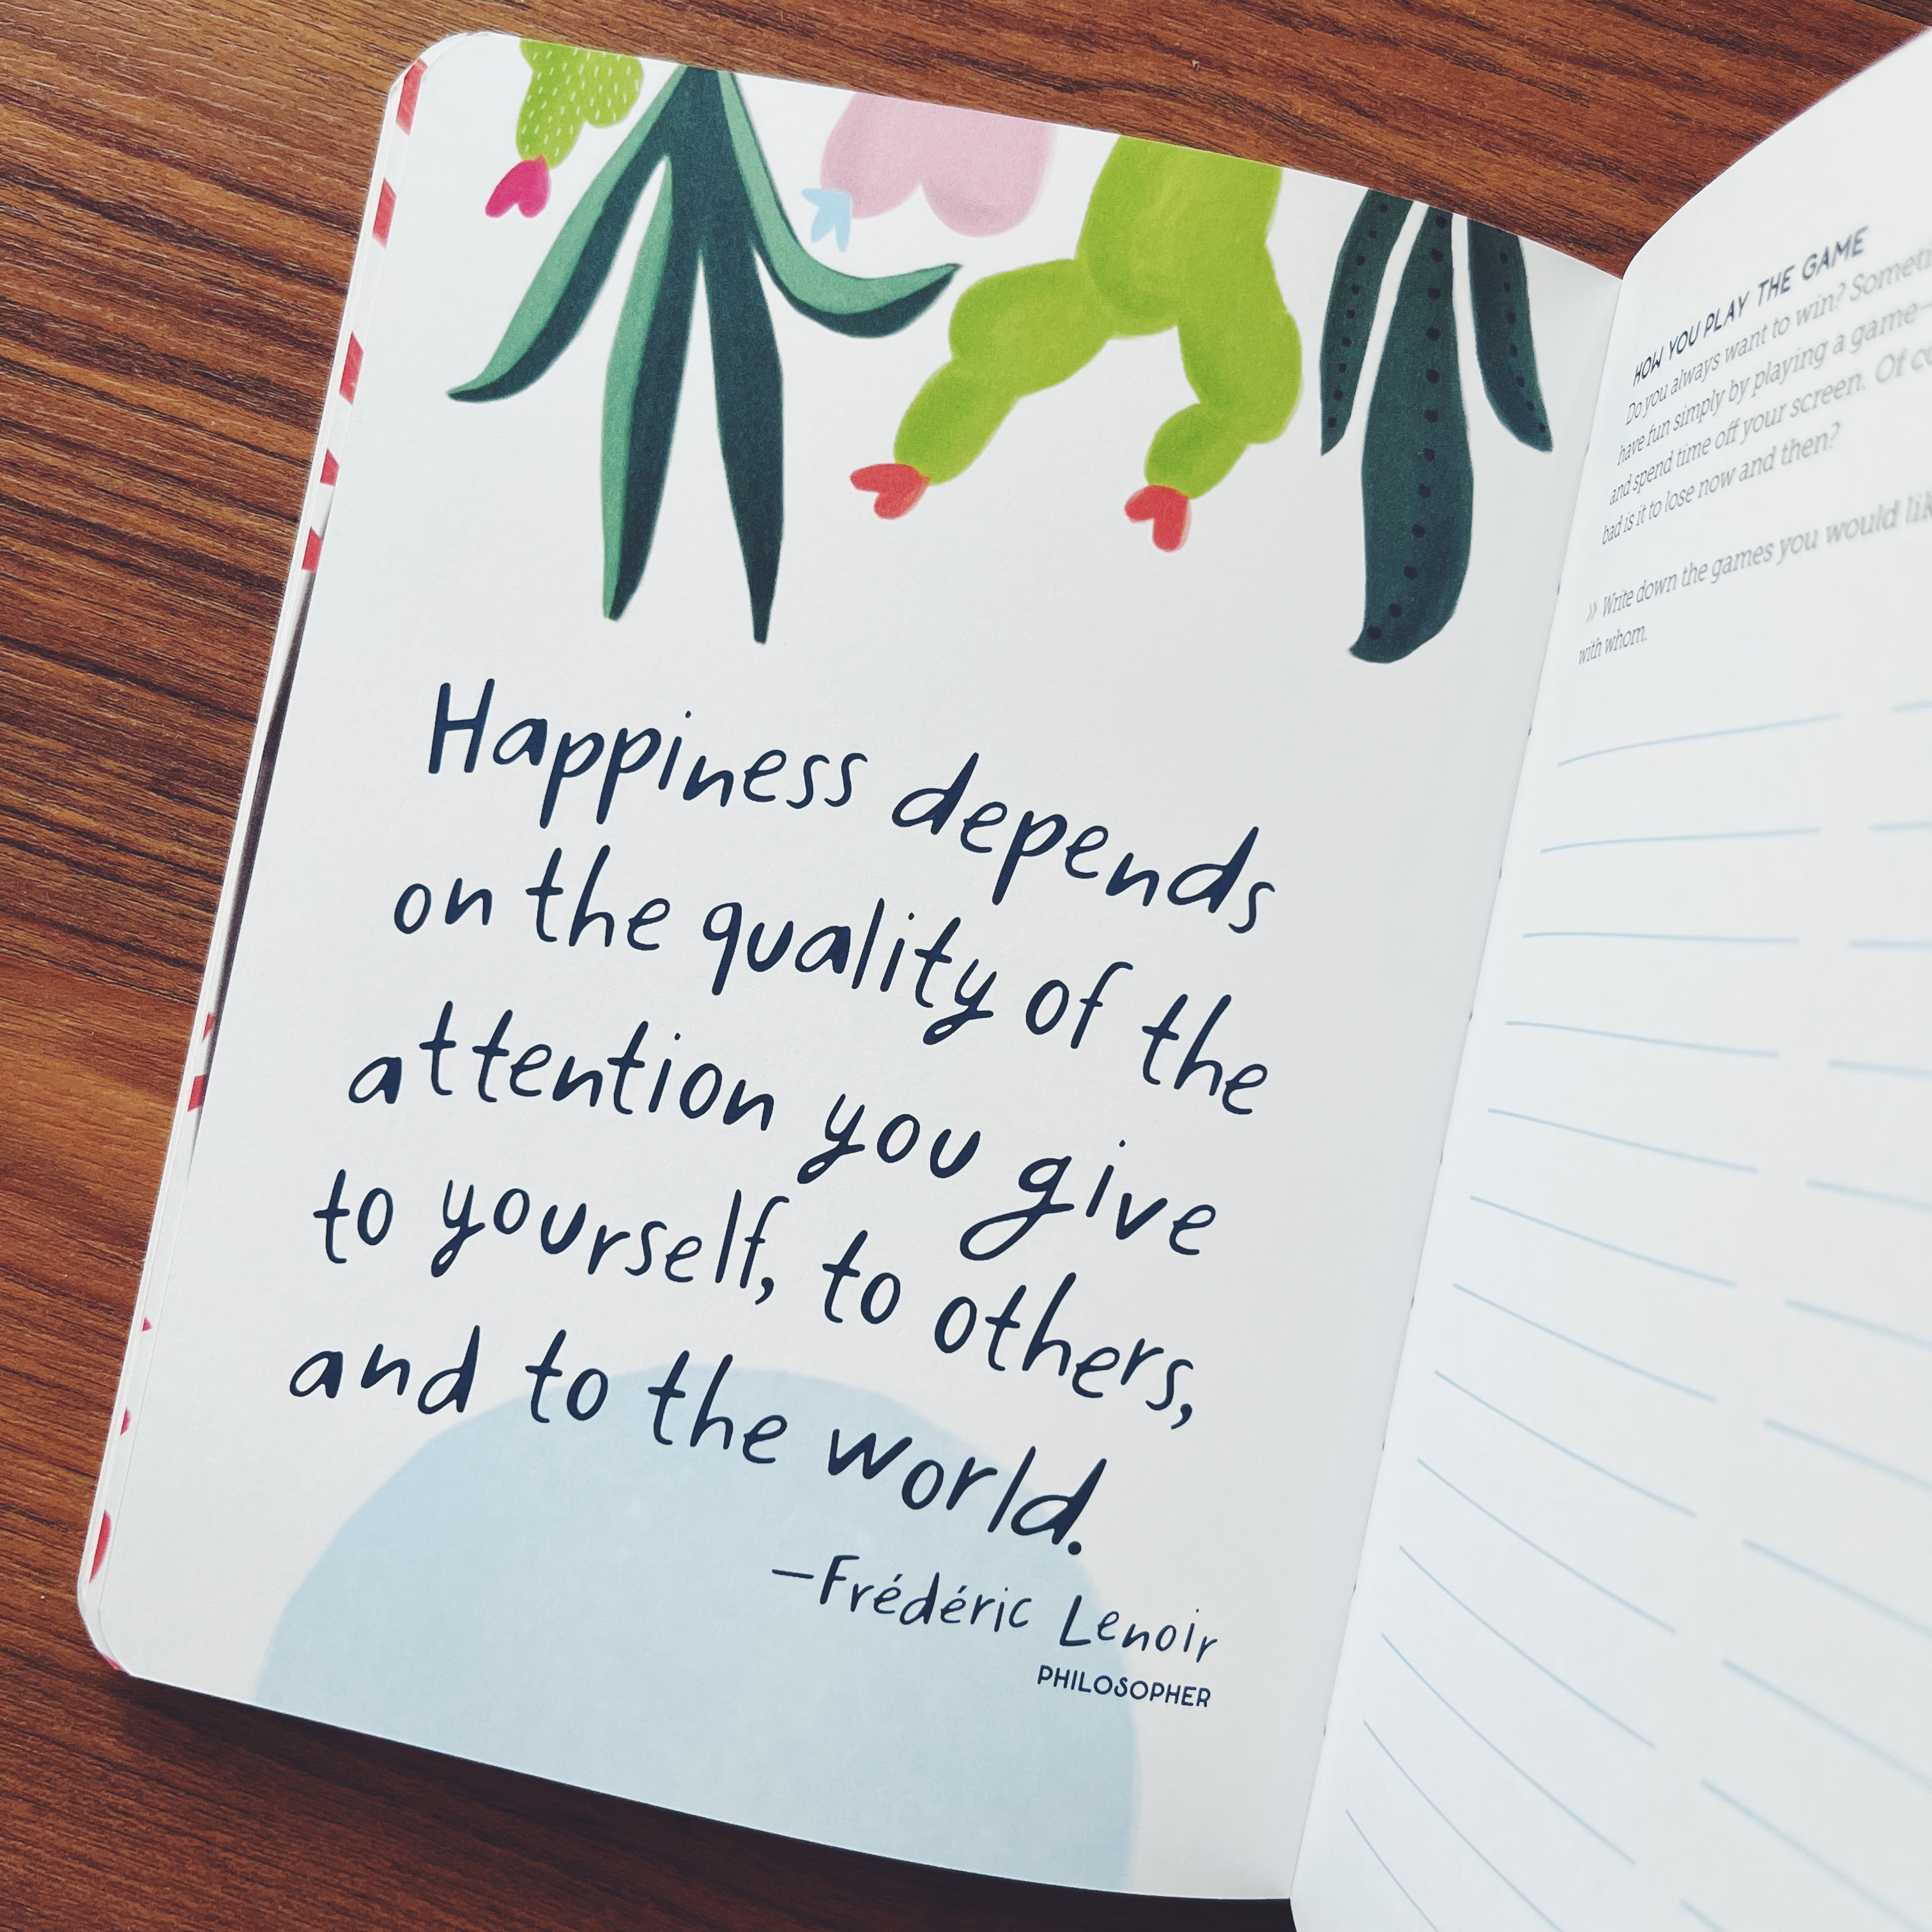 Happiness depends
on the quality of the
attention you give
to yourself, to others,
and to the world.
—Frédéric Lenoir
PHILOSOPHER
HOW YOU PLAY THE GAME
Do you always want to win?
have fun simply by playing a game—
and spend time off your screen. Of
bad is it to lose now and then?
» Write down the games you would
with whom.